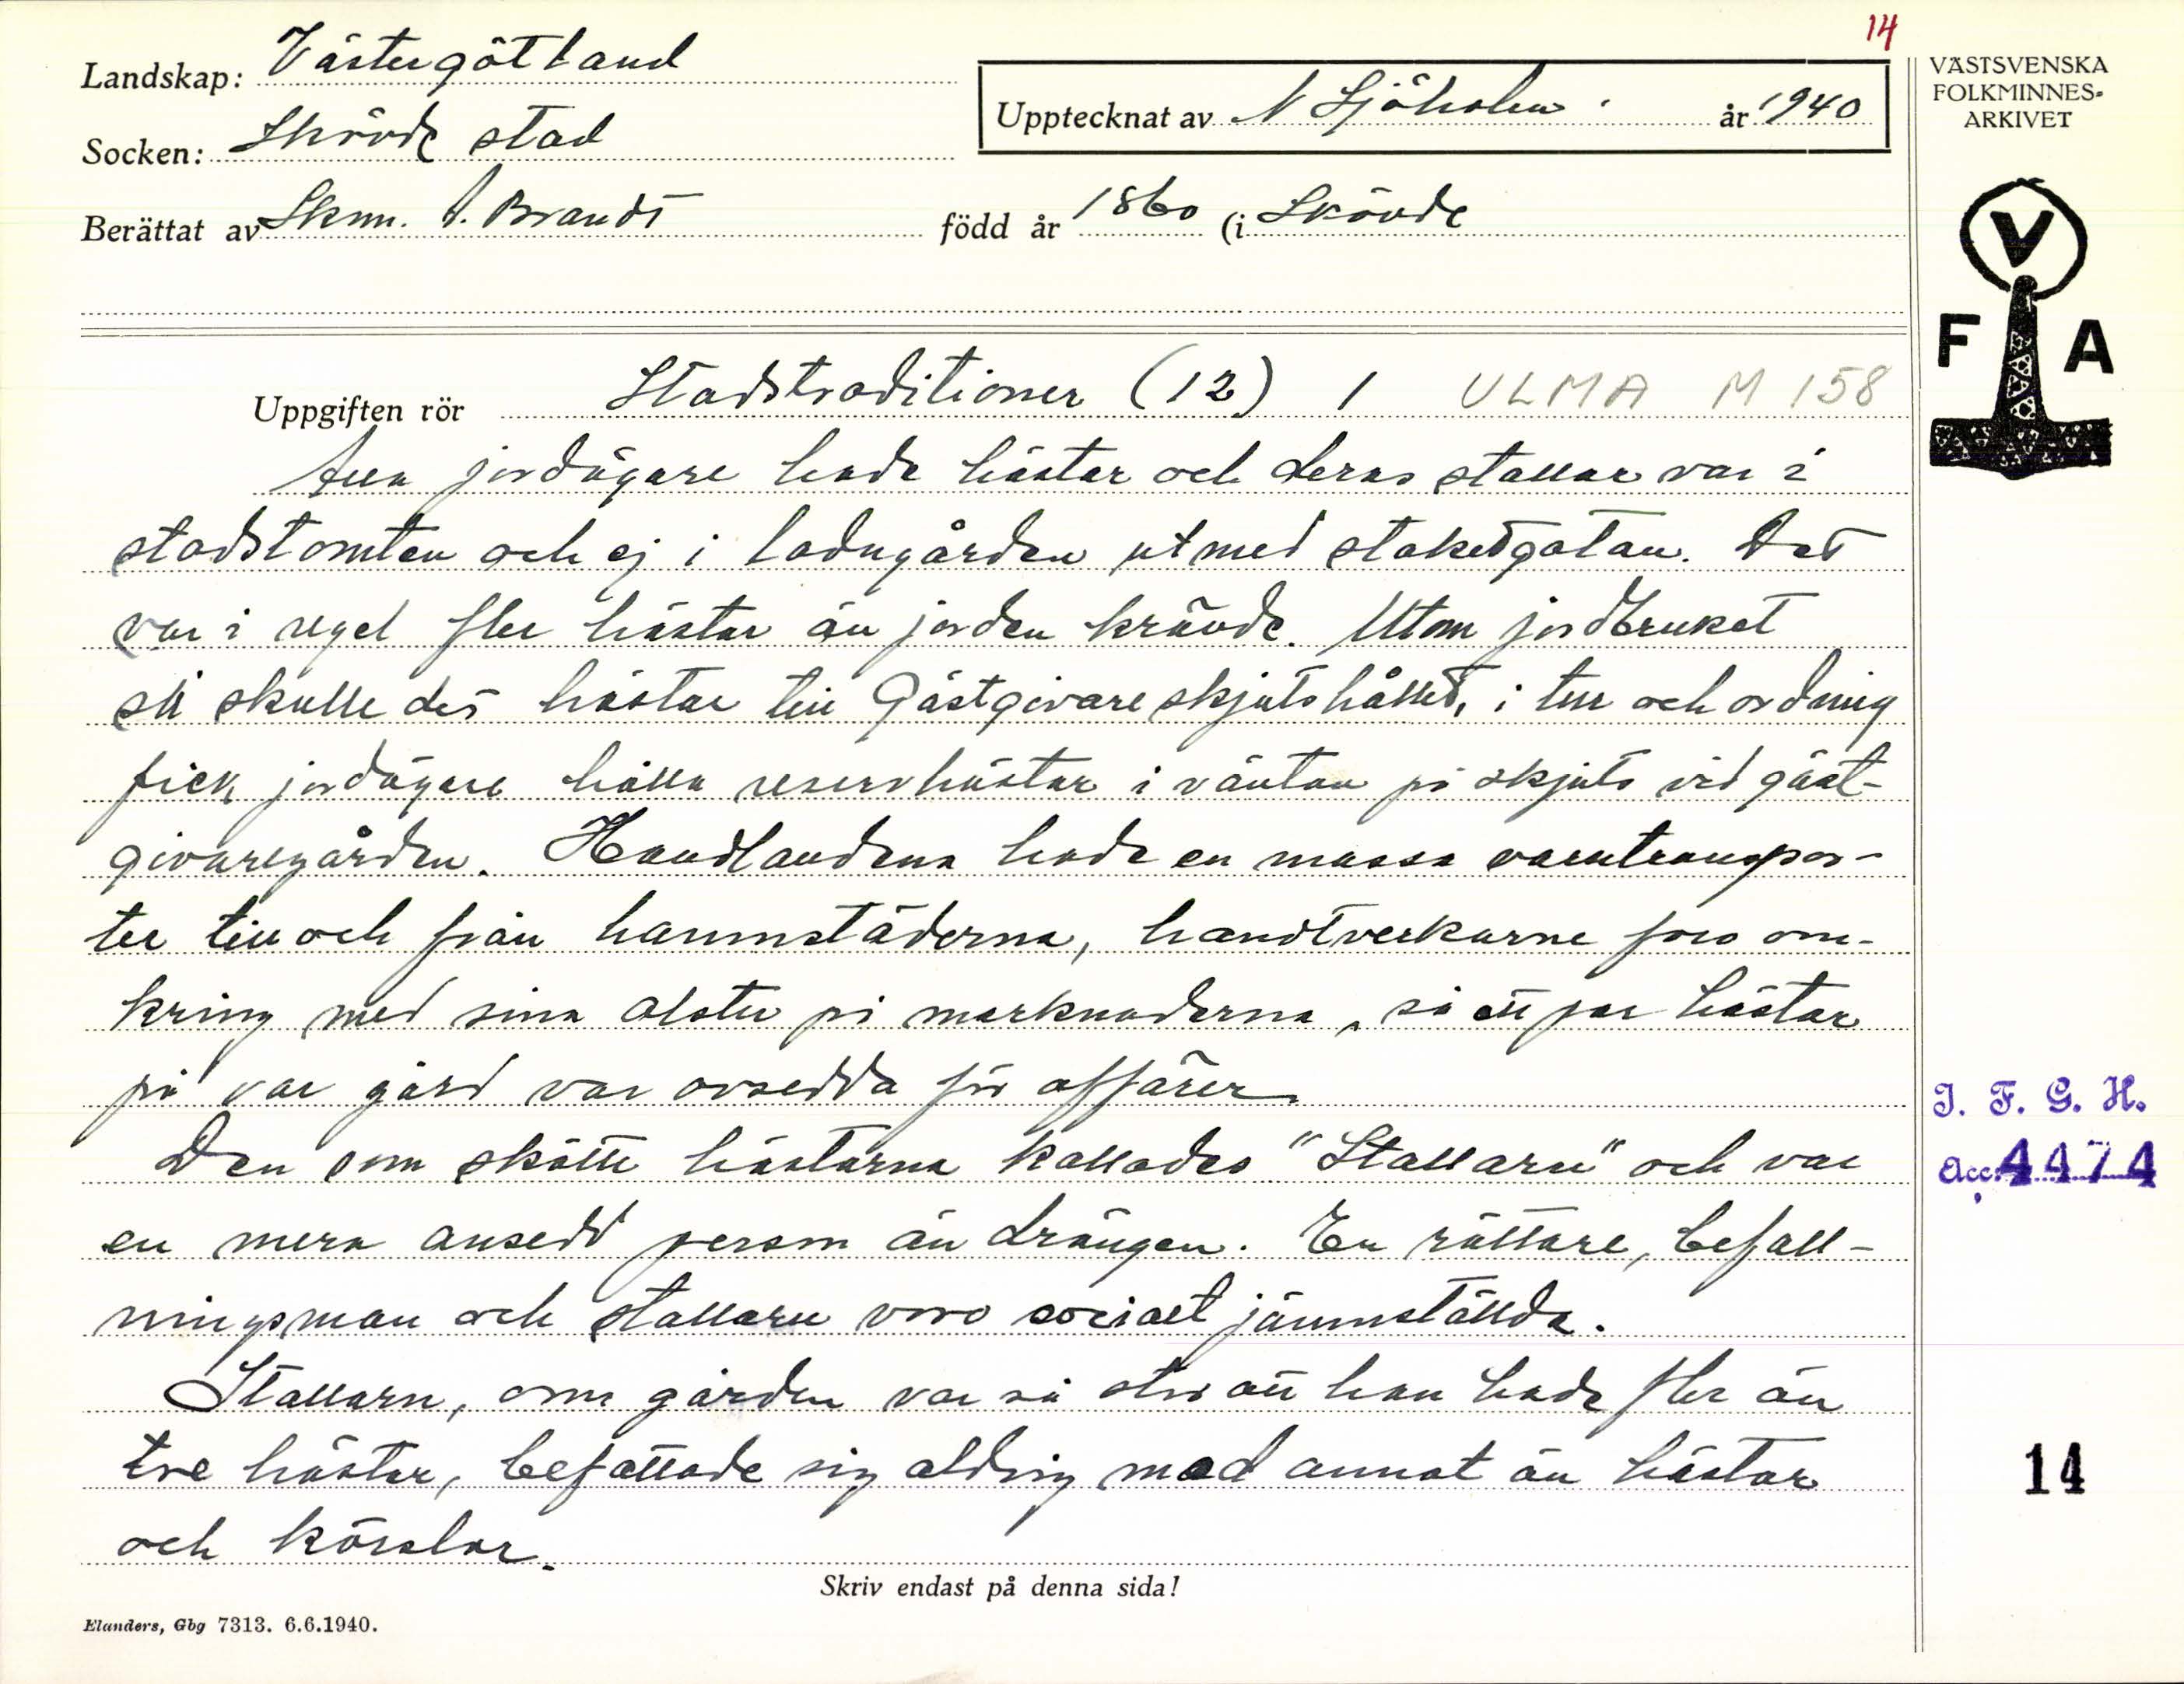 14
Landskap: Västergötland
Socken: Skövde stad
Upptecknat av N Sjöholm. år 1940
Berättat av Skm. A. Brandt född år 1860 (i Skövde
VÄSTSVENSKA
FOLKMINNES-
ARKIVET
V
F A
Uppgiften rör Stadstraditioner (12) 1 ULMA M 158
Alla jordägare hade hästar och deras stallar var i
stadstomten och ej i ladugården utmed staketgatan. Det
var i regel fler hästar än jorden krävde. Utom jordbruket
så skulle det hästar till Gästgivareskjutshållet, i tur och ordning
fick jordägare hålla reservhästar i väntan på skjuts vid gäst-
givaregården. Handlandena hade en massa varutranspor-
ter till och från hamnstäderna, handtverkarne foro om-
kring med sina alster på marknaderna, så ett par hästar
på var gård var avsedda för affärer.
Den som skötte hästarna kallades "Stallarn" och var
en mera ansedd person än drängen. En rättare, befall-
ningsman och stallarn voro socialt jämnställda.
Stallarn, om gården var så stor att han hade fler än
tre hästar, befattade sig aldrig med annat än hästar
och körslor.
I. F. G. H.
Acc. 4474
14
Skriv endast på denna sida!
Elanders, Gbg 7313. 6.6.1940.